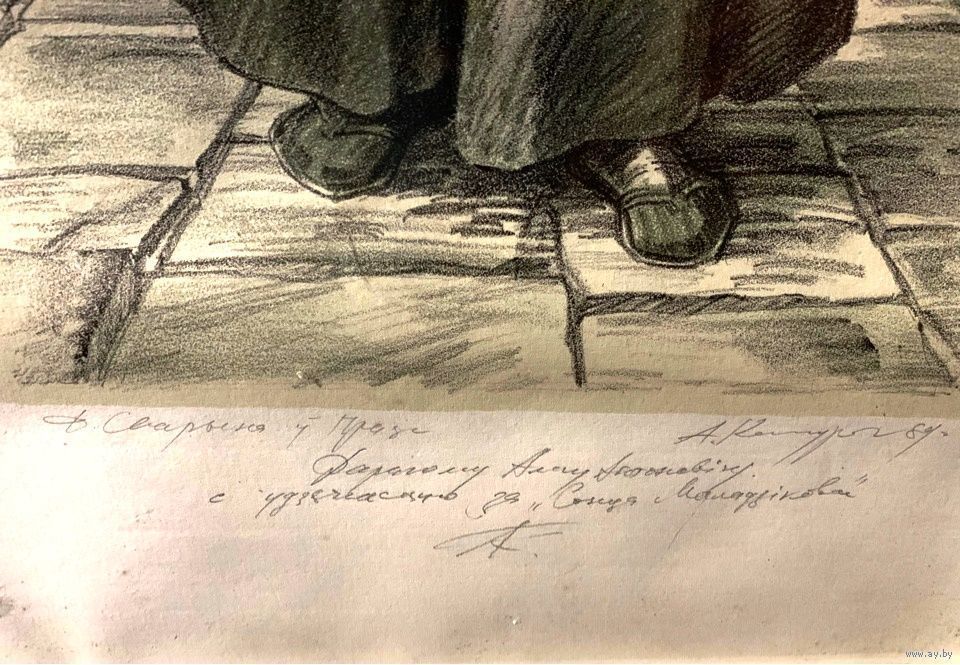 Ф. Скарына ў Празе А. Кашкурэвіч
Дарагому Алегу Антонавічу
с удзячнасцю за „Сонца Маладзіковае"
www.ay.by